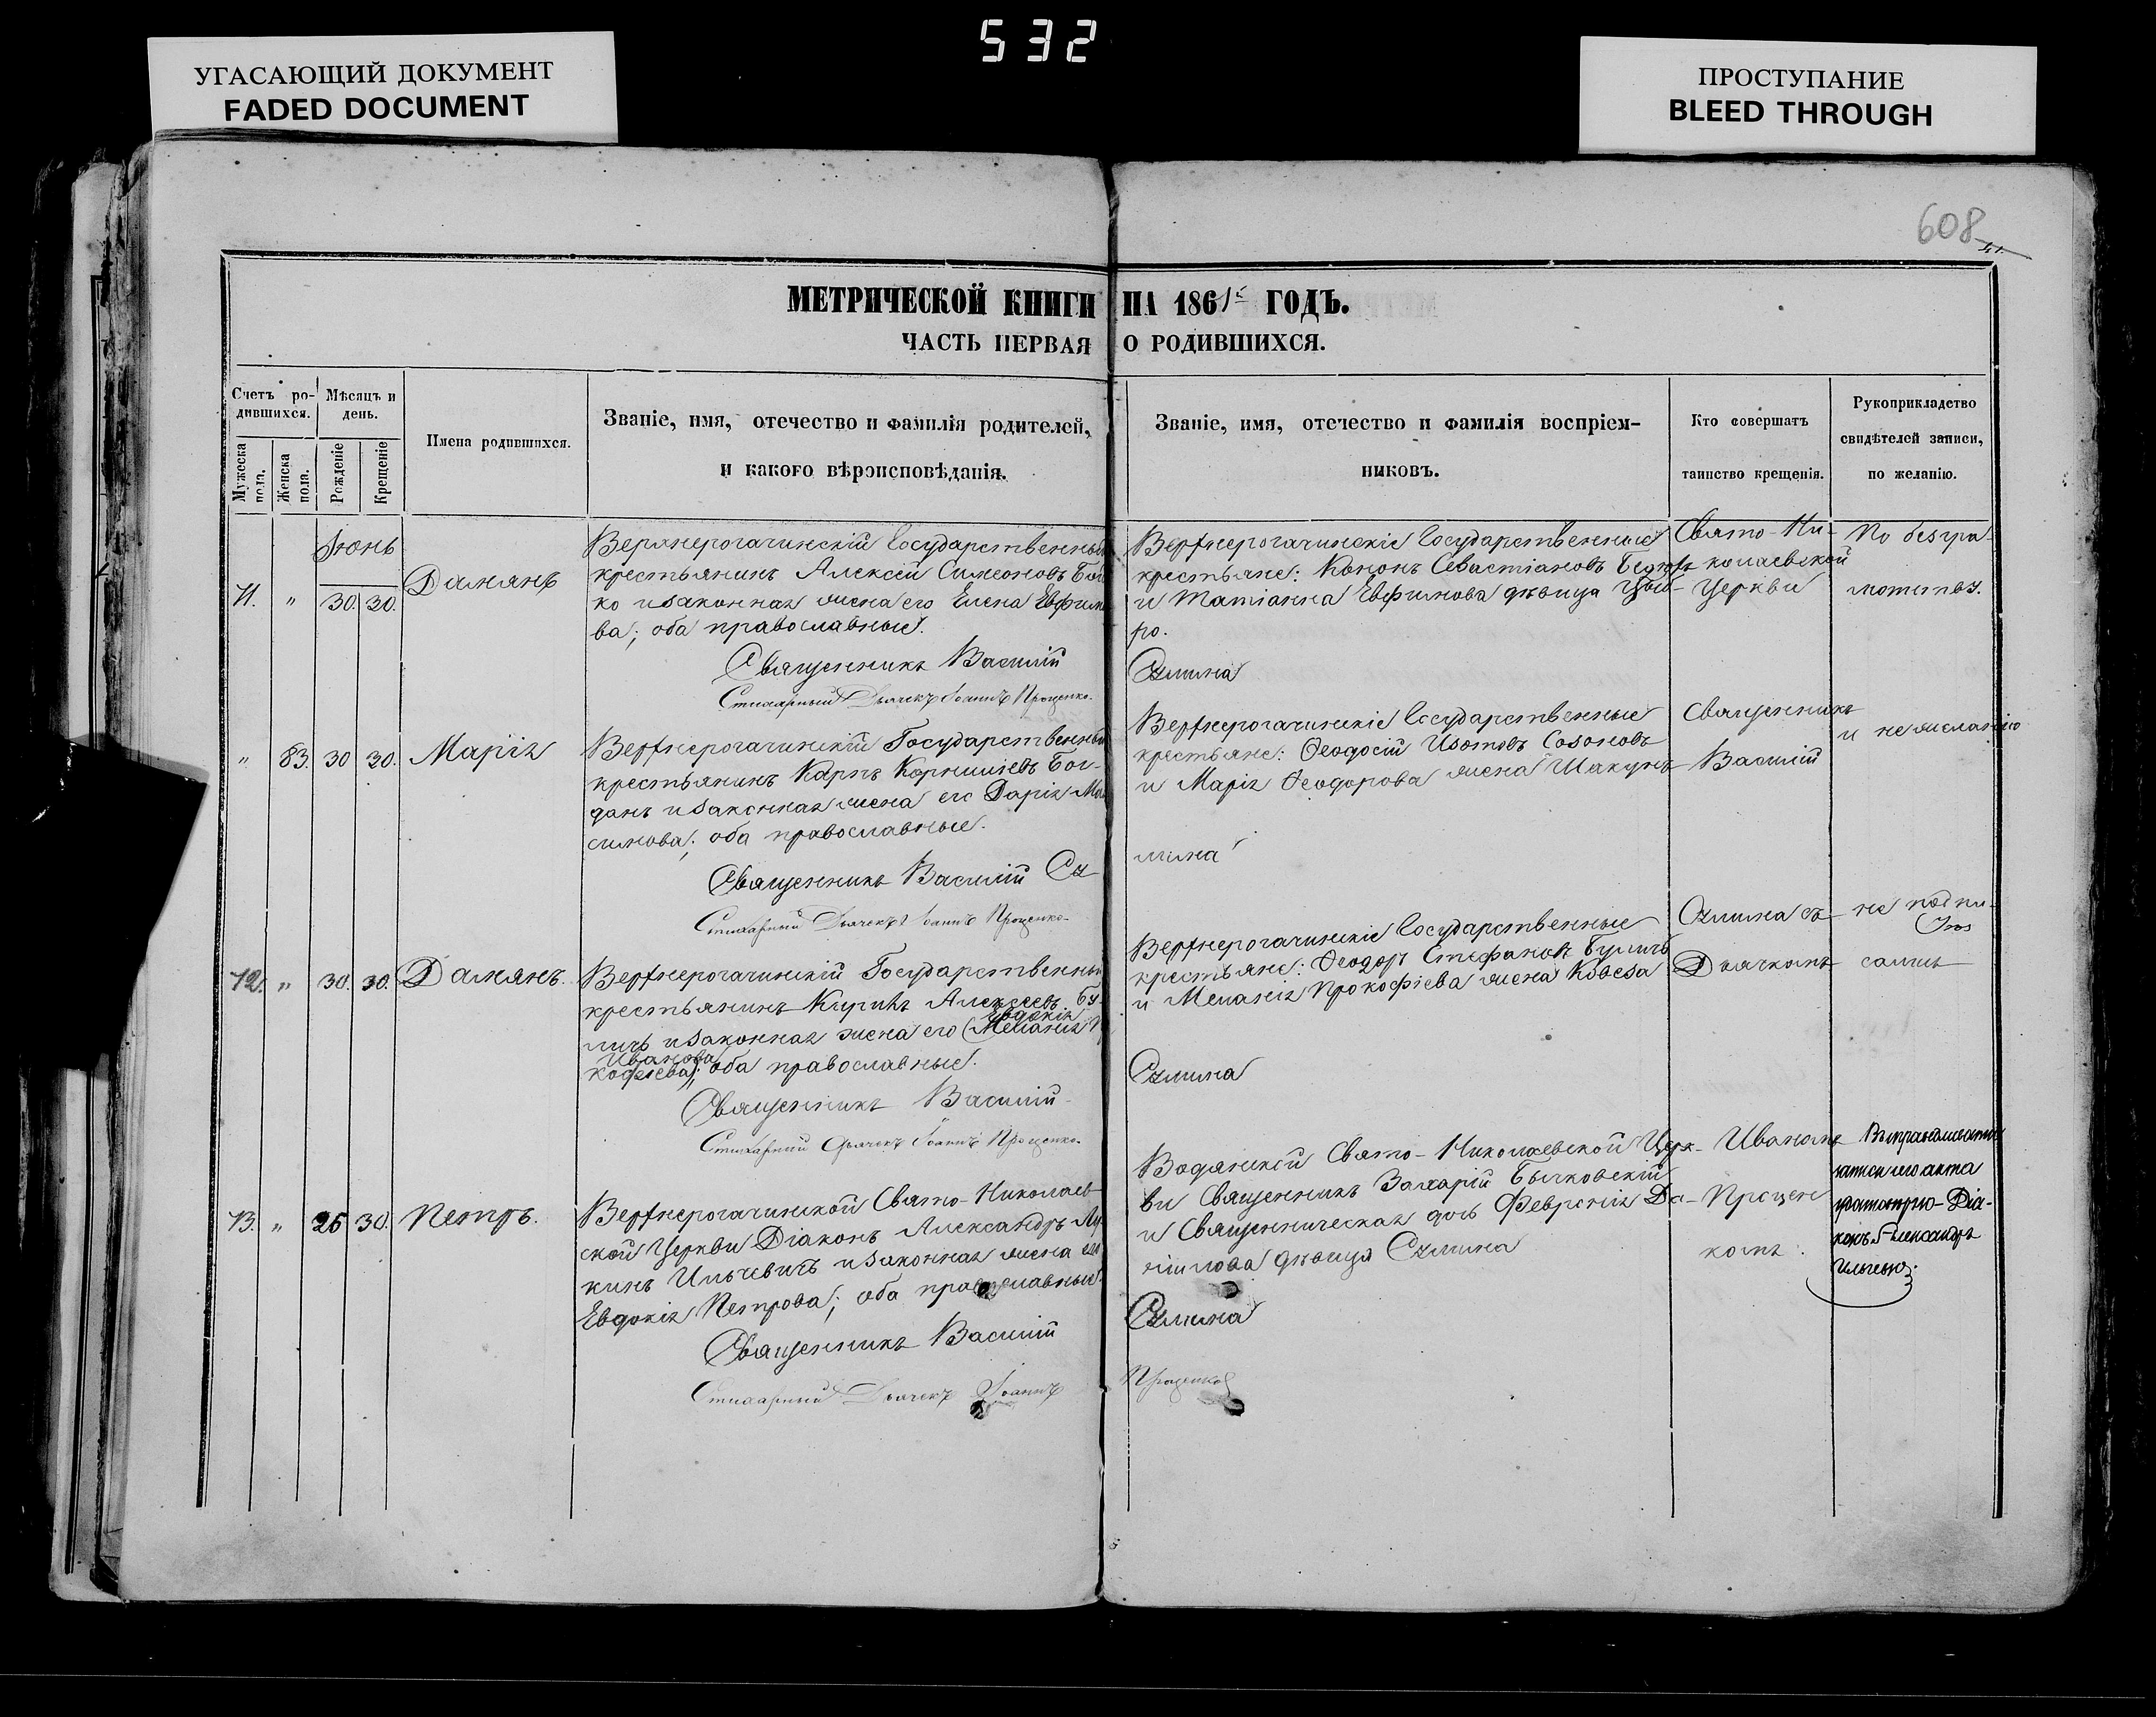 532
УГАСАЮЩИЙ ДОКУМЕНТ
FADED DOCUMENT
ПРОСТУПАНИЕ
BLEED THROUGH
608
МЕТРИЧЕСКОЙ КНИГИ НА 1861 ГОДЪ.
ЧАСТЬ ПЕРВАЯ О РОДИВШИХСЯ.
Счетъ ро-
дившихся.
Мужеска
пола.
Женска
пола.
Мѣсяцъ и
день.
Рожденіе
Крещеніе
Имена родившихся.
Званіе, имя, отечество и фамилія родителей,
и какого вѣроисповѣданія.
Званіе, имя, отечество и фамилія воспріем-
никовъ.
Кто совершатъ
таинство крещенія.
Рукоприкладство
свидѣтелей записи,
по желанію.
Іюнь
71. " 30. 30. Дамянъ
Верхнерогачинскій Государственный
крестьянинъ Алексѣй Симеоновъ
ко и законная жена его Елена Евфимо
ва; оба православные.
Священникъ Василій
Стихарный Дьячекъ Іоаннъ Проценко.
Верхнерогачинскіе Государственные
крестьяне: Кононъ Севастіановъ
и Татіанна Евфимова дѣвица Цыб-
ро.
Слина
Свято-Ни-
колаевской
Церкви
По безгра-
мотству.
" 83. 30 30. Марія
Верхнерогачинскій Государственный
крестьянинъ Карпъ Корниліевъ Бог-
данъ и законная жена его Дарія Ма
симова; оба православные.
Священникъ Василій
Стихарный Дьячекъ Іоаннъ Проценко
Верхнерогачинскіе Государственные
крестьяне: Ѳеодосій Изотовъ Созоновъ
и Марія Ѳеодорова жена Шакунъ
Священникъ
Василій
и нежеланію
72. " 30. 30. Дамянъ.
Верхнерогачинскій Государственный
крестьянинъ Кирилъ Алексѣевъ Бу
личъ и законная жена его (Меланія
Евдокія
Иванова
кофіева); оба православные.
Священникъ Василій
Стихарный Дьячекъ Іоаннъ Проценко
Верхнерогачинскіе Государственные
крестьяне: Ѳеодоръ Стефановъ Буличъ
и Меланія Прокофіева жена Ковеза
съ
Дьячкомъ
не подпи-
сались
73. " 26 30. Петръ.
Верхнерогачинской Свято-Николаев-
ской Церкви Діаконъ Александръ Лу
кинъ Ильчевичъ и законная жена его
Евдокія Петрова; оба православные.
Священникъ Василій
Стихарный Дьячекъ Іоаннъ
Водянской Свято-Николаевской Церк-
ви Священникъ Захарій Бычковскій
и Священническая дочь Февронія Да-
ніилова дѣвица
Проценко
Иваномъ
Процен
комъ.
акта
Діа-
конъ Александръ